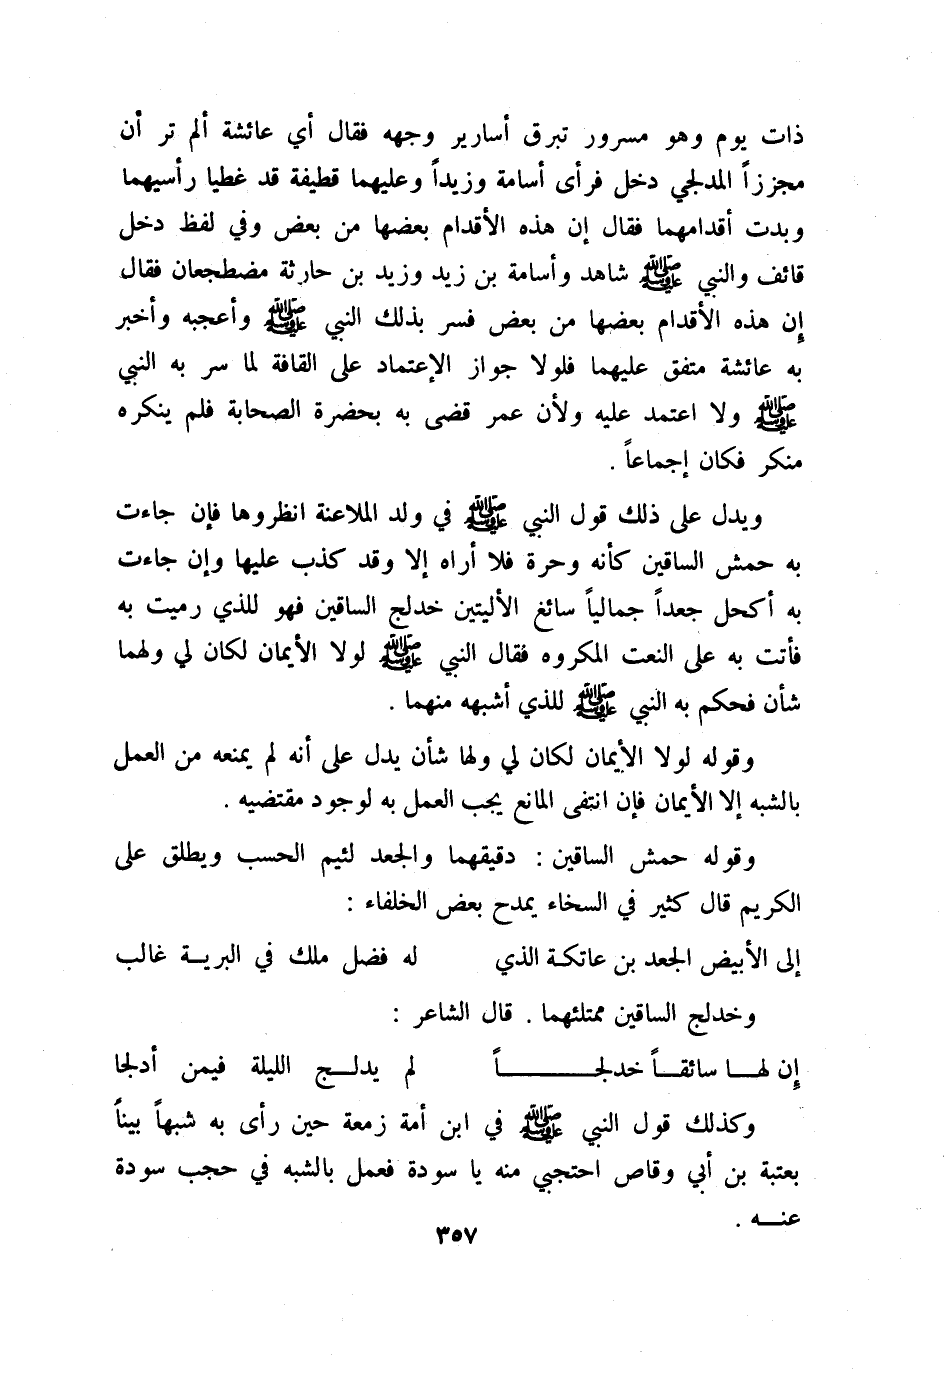 ذات يوم وهو مسرور تبرق أسارير وجهه فقال أي عائشة ألم تر أن
مجززاً المدلجي دخل فرأى أسامة وزيداً وعليهما قطيفة قد غطيا رأسيهما
وبدت أقدامهما فقال إن هذه الأقدام بعضها من بعض وفي لفظ دخل
قائف والنبي ﷺ شاهد وأسامة بن زيد وزيد بن حارثة مضطجعان فقال
إن هذه الأقدام بعضها من بعض فسر بذلك النبي ﷺ وأعجبه وأخبر
به عائشة متفق عليهما فلولا جواز الإعتماد على القافة لما سر به النبي
ﷺ ولا اعتمد عليه ولأن عمر قضى به بحضرة الصحابة فلم ينكره
منكر فكان إجماعاً .
ويدل على ذلك قول النبي ﷺ في ولد الملاعنة انظروها فإن جاءت
به حمش الساقين كأنه وحرة فلا أراه إلا وقد كذب عليها وإن جاءت
به أكحل جعداً جمالياً سائغ الأليتين خدلج الساقين فهو للذي رميت به
فأتت به على النعت المكروه فقال النبي ﷺ لولا الأيمان لكان لي ولهما
شأن فحكم به النبي ﷺ للذي أشبهه منهما .
وقوله لولا الأيمان لكان لي ولها شأن يدل على أنه لم يمنعه من العمل
بالشبه إلا الأيمان فإن انتفى المانع يجب العمل به لوجود مقتضيه .
وقوله حمش الساقين : دقيقهما والجعد لئيم الحسب ويطلق على
الكريم قال كثير في السخاء يمدح بعض الخلفاء :
إلى الأبيض الجعد بن عاتكة الذي له فضل ملك في البرية غالب
وخدلج الساقين ممتلئهما . قال الشاعر :
إن لها سائقاً خدلجاً لم يدلج الليلة فيمن أدلجا
وكذلك قول النبي ﷺ في ابن أمة زمعة حين رأى به شبهاً بيناً
بعتبة بن أبي وقاص احتجبي منه يا سودة فعمل بالشبه في حجب سودة
عنه .
٣٥٧